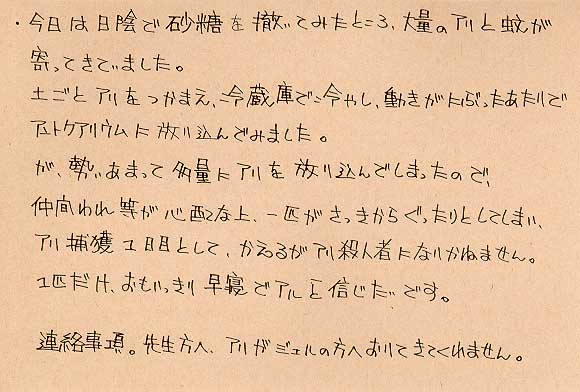 ・今日は日陰で砂糖を撤いてみたところ、大量のアリと蚊が
寄ってきていました。
土ごとアリをつかまえ、冷蔵庫で冷やし、動きがにぶったあたりで
アントクアリウムに放り込んでみました。
が、勢いあまって多量にアリを放り込んでしまったので、
仲間われ等が心配な上、一匹がさっきからぐったりとしてしまい、
アリ捕獲1日目として、かえるがアリ殺人者になりかねません。
1匹だけ、おもいっきり早寝でアルと信じたいです。
連絡事項。先生方へ、アリがジェルの方へおりてきてくれません。